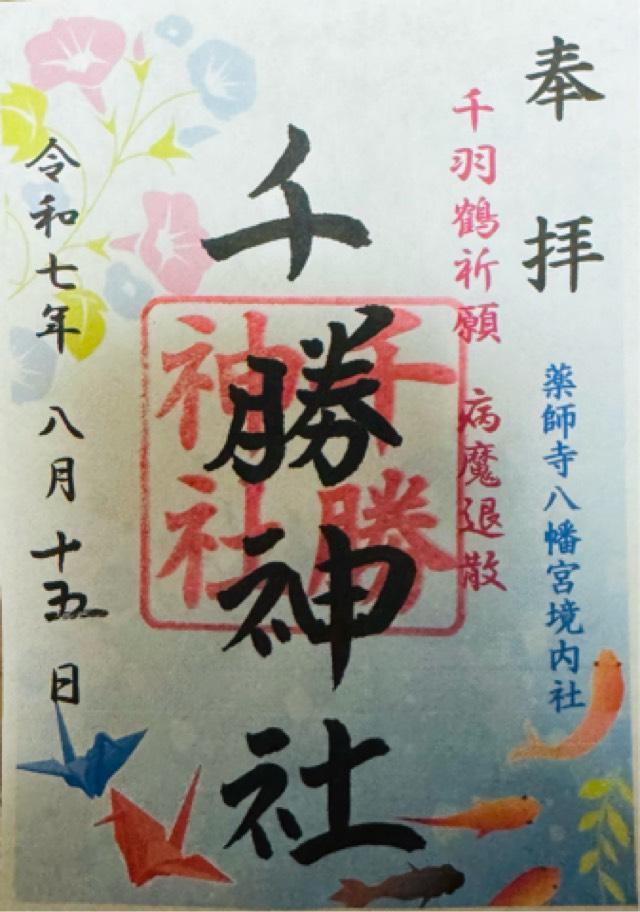 奉拝
薬師寺八幡宮境内社
千羽鶴祈願 病魔退散
千勝神社
千勝
神社
令和七年 八月 十五 日